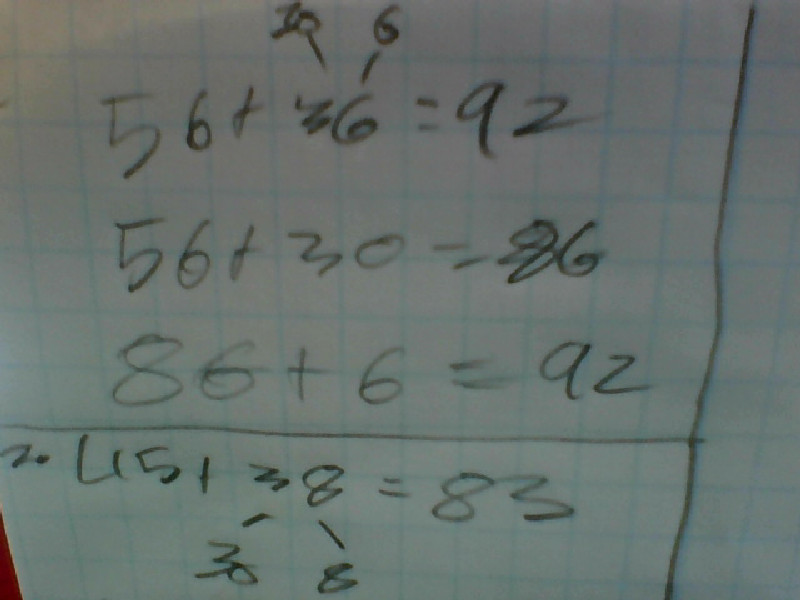 30 6
56+36=92
56+30=86
86+6=92
2. 45+38=83
30 8